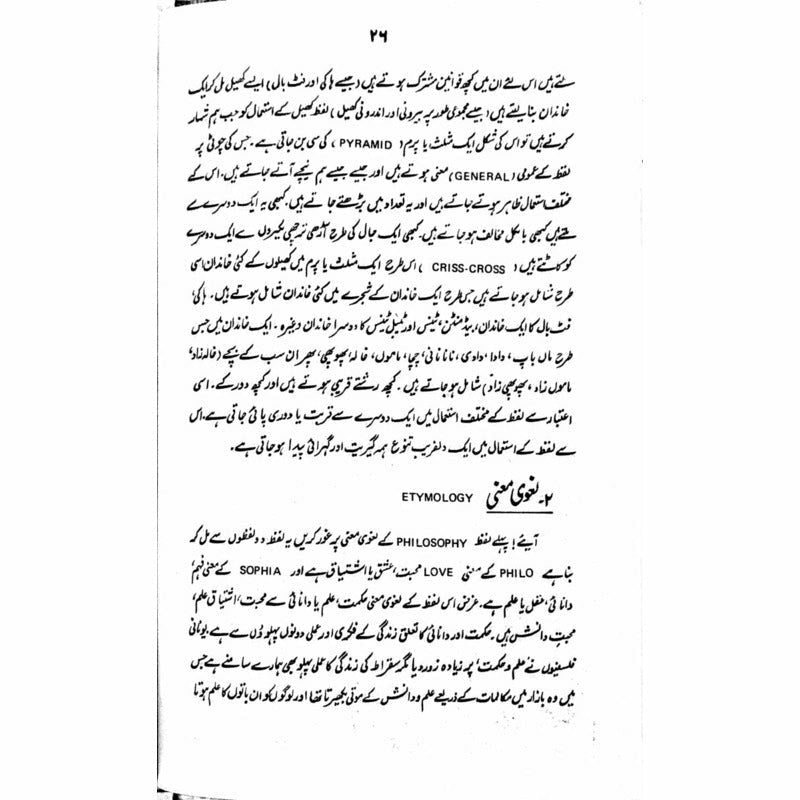 ۲۶
ملتے ہیں اس لئے ان میں کچھ قوانین مشترک ہوتے ہیں (جیسے ہاکی اور فٹ بال) ایسے کھیل مل کر ایک
خاندان بنا لیتے ہیں (جیسے مجموعی طور پر بیرونی اور اندرونی کھیل) لفظ کھیل کے استعمال کو جب ہم شمار
کرتے ہیں تو اس کی شکل ایک مثلث یا پرم (PYRAMID) کی سی بن جاتی ہے۔ جس کی چوٹی پر
لفظ کے عمومی (GENERAL) معنی ہوتے ہیں اور جیسے جیسے ہم نیچے آتے جاتے ہیں۔ اس کے
مختلف استعمال ظاہر ہوتے جاتے ہیں اور یہ تعداد میں بڑھتے جاتے ہیں۔ کبھی یہ ایک دوسرے سے
ملتے ہیں کبھی بالکل مخالف ہو جاتے ہیں۔ کبھی ایک جال کی طرح آڑھی ترچھی لکیروں سے ایک دوسرے
کو کاٹتے ہیں (CRISS-CROSS) اس طرح ایک مثلث یا پرم میں کھیلوں کے کئی خاندان اسی
طرح شامل ہو جاتے ہیں جس طرح ایک خاندان کے شجرے میں کئی خاندان شامل ہوتے ہیں۔ ہاکی،
فٹ بال کا ایک خاندان، بیڈمنٹن، ٹینس اور ٹیبل ٹینس کا دوسرا خاندان وغیرہ۔ ایک خاندان میں جس
طرح ماں باپ، دادا، دادی، نانا نانی، چچا، ماموں، خالہ، پھوپھی، پھر ان سب کے بچے (خالہ زاد،
ماموں زاد، پھوپھی زاد) شامل ہو جاتے ہیں۔ کچھ رشتے قریبی ہوتے ہیں اور کچھ دور کے۔ اسی
اعتبار سے لفظ کے مختلف استعمال میں ایک دوسرے سے قربت یا دوری پائی جاتی ہے۔ اس
سے لفظ کے استعمال میں ایک دلفریب تنوع ہمہ گیریت اور گہرائی پیدا ہو جاتی ہے۔
۲۔ لغوی معنی ETYMOLOGY
آیئے! پہلے لفظ PHILOSOPHY کے لغوی معنی پر غور کریں یہ لفظ دو لفظوں سے مل کر
بنا ہے PHILO کے معنی LOVE محبت، عشق یا اشتیاق ہے اور SOPHIA کے معنی فہم،
دانائی، عقل یا علم ہے۔ غرض اس لفظ کے لغوی معنی حکمت، علم یا دانائی سے محبت، اشتیاق علم،
محبت دانش ہیں۔ حکمت اور دانائی کا تعلق زندگی کے فکری اور عملی دونوں پہلوؤں سے ہے۔ یونانی
فلسفیوں نے 'علم و حکمت' پر زیادہ زور دیا مگر سقراط کی زندگی کا عملی پہلو بھی ہمارے سامنے ہے جس
میں وہ بازار میں مکالمات کے ذریعے علم و دانش کے موتی بکھیرتا تھا اور لوگوں کو ان باتوں کا علم ہوتا